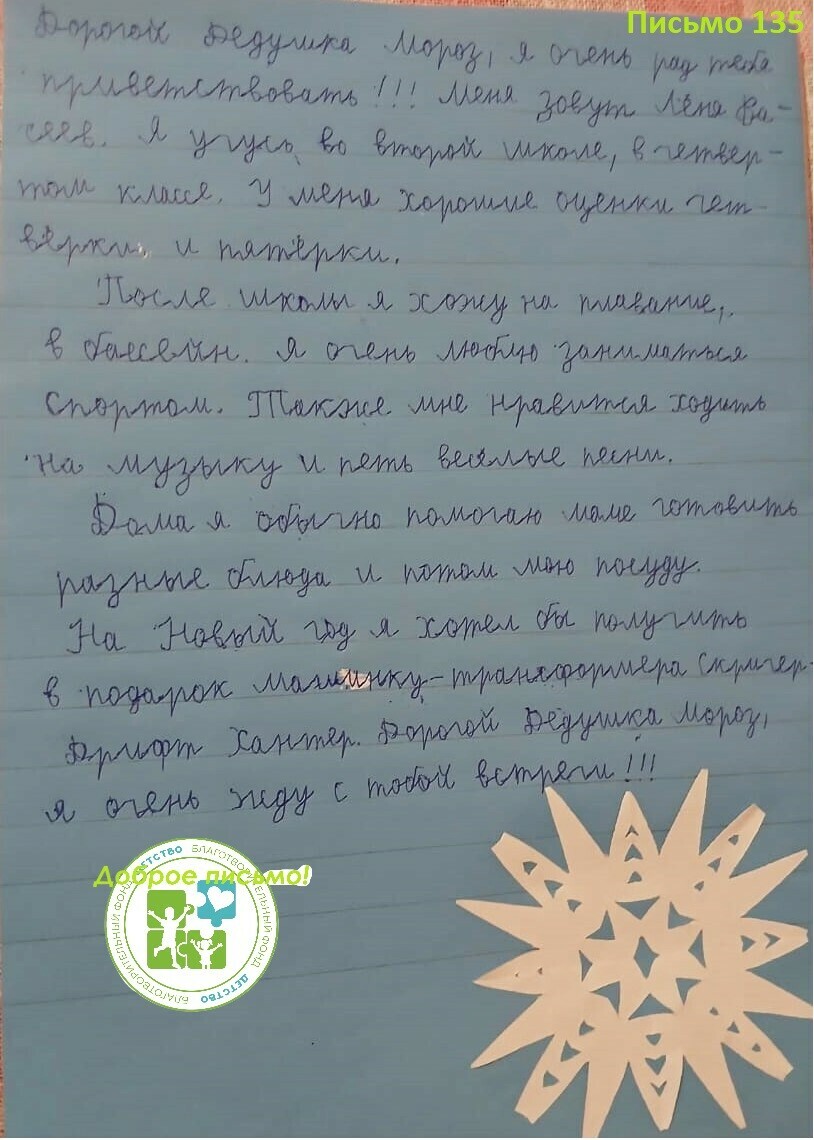 Письмо 135
Дорогой Дедушка Мороз, я очень рад тебя
приветствовать!!! Меня зовут Лёня
сеев. Я учусь во второй школе, в четвер-
том классе. У меня хорошие оценки чет-
вёрки и пятёрки.
После школы я хожу на плавание,
в бассейн. Я очень люблю заниматься
спортом. Также мне нравится ходить
на музыку и петь весёлые песни.
Дома я обычно помогаю маме готовить
разные блюда и потом мою посуду.
На Новый год я хотел бы получить
в подарок машинку-трансформера Скричер-
Дрифт Хантер. Дорогой Дедушка Мороз,
я очень жду с тобой встречи!!!
Доброе письмо!
БЛАГОТВОРИТЕЛЬНЫЙ ФОНД ДЕТСТВО БЛАГОТВОРИТЕЛЬНЫЙ ФОНД ДЕТСТВО